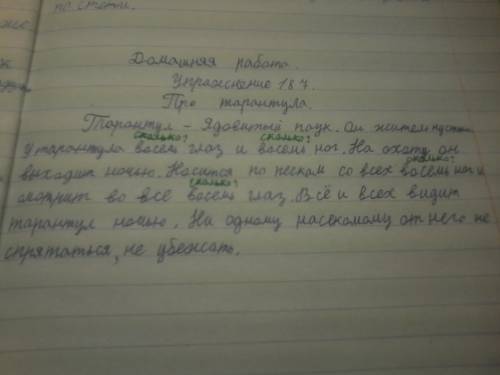 по степи.
Домашняя работа.
Упражнение 187.
Про тарантула.
Тарантул - Ядовитый паук. Он житель пустыни
сколько? сколько?
У тарантула восемь глаз и восемь ног. На охоту он
сколько?
выходит ночью. Носится по пескам со всех восемь ног и
сколько?
смотрит во все восемь глаз. Всё и всех видит
тарантул ночью. Ни одному насекомому от него не
спрятаться, не убежать.